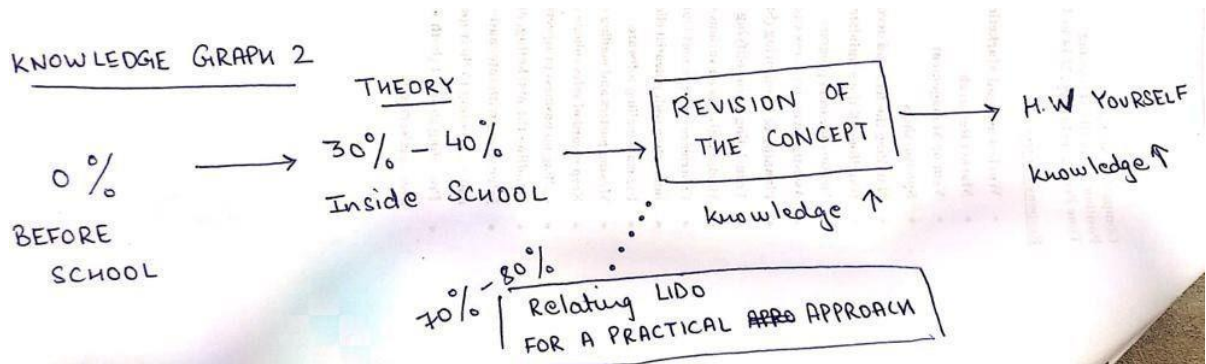 KNOWLEDGE GRAPH 2
0%
BEFORE
SCHOOL
THEORY
30% - 40%
Inside SCHOOL
REVISION OF
THE CONCEPT
knowledge ↑
H.W YOURSELF
knowledge ↑
70% - 80%
Relating LIDO
FOR A PRACTICAL APPROACH